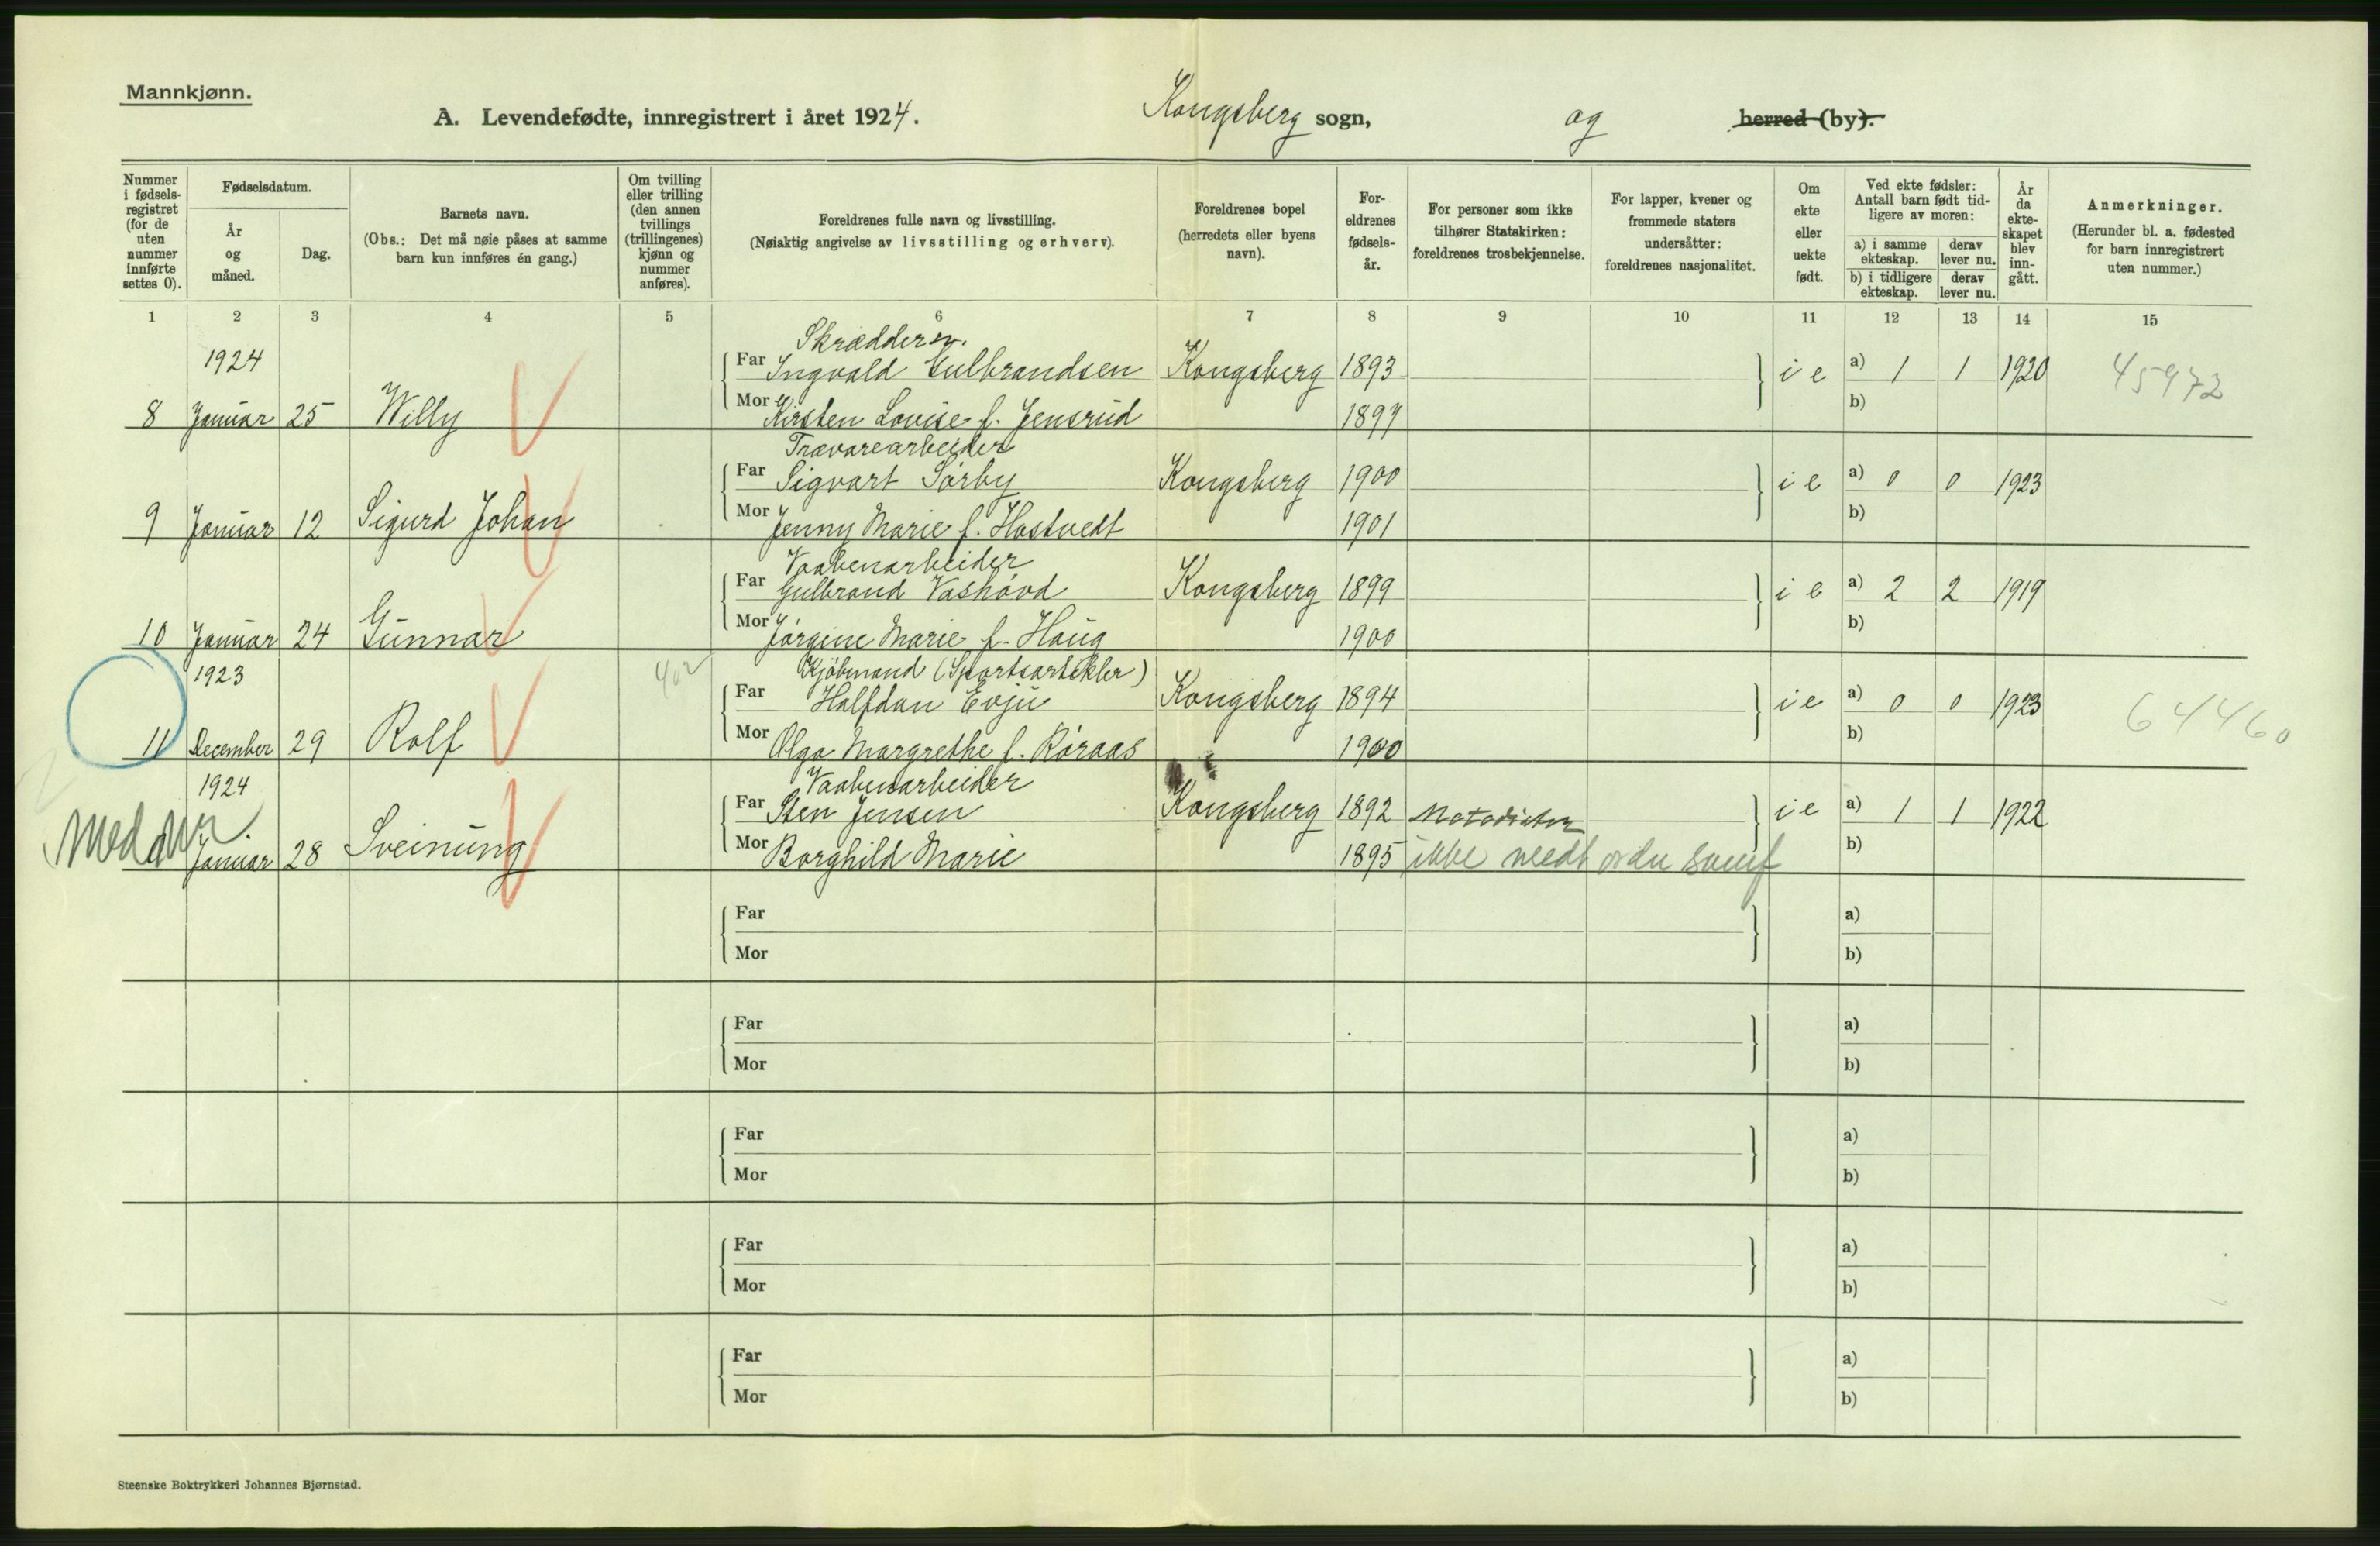 Mannkjønn.
A. Levendefødte, innregistrert i året 1924. Kongsberg sogn, og herred (by).
Nummer i fødselsregistret (for de uten nummer innførte settes 0).
Fødselsdatum.
År og måned.
Dag.
Barnets navn.
(Obs.: Det må nøie påses at samme barn kun innføres én gang.)
Om tvilling eller trilling (den annen tvillings (trillingenes) kjønn og nummer anføres).
Foreldrenes fulle navn og livsstilling.
(Nøiaktig angivelse av livsstilling og erhverv).
Foreldrenes bopel (herredets eller byens navn).
Foreldrenes fødselsår.
For personer som ikke tilhører Statskirken: foreldrenes trosbekjennelse.
For lapper, kvener og fremmede staters undersåtter: foreldrenes nasjonalitet.
Om ekte eller uekte født.
Ved ekte fødsler: Antall barn født tidligere av moren:
a) i samme ekteskap. derav lever nu.
b) i tidligere ekteskap. derav lever nu.
År da ekteskapet blev inngått.
Anmerkninger.
(Herunder bl. a. fødested for barn innregistrert uten nummer.)
1 2 3 4 5 6 7 8 9 10 11 12 13 14 15
1924
Skrædder
Far Ingvald Gulbrandsen Kongsberg 1893 i e a) 1 1 1920 45972
8 Januar 25 Willy Mor Kirsten Lovise f. Jensrud 1897 b)
Trævarearbeider
Far Sigvart Sörby Kongsberg 1900 i e a) 0 0 1923
9 Januar 12 Sigurd Johan Mor Jenny Marie f. Hostvedt 1901 b)
Vaabenarbeider
Far Gulbrand Vashovd Kongsberg 1899 i e a) 2 2 1919
10 Januar 24 Gunnar Mor Jörgine Marie f. Haug 1900 b)
1923 402
Kjöbmand (Sportsartikler)
Far Halfdan Evju Kongsberg 1894 i e a) 0 0 1923 64460
11 December 29 Rolf Mor Olga Margrethe f. Röraas 1900 b)
1924
Vaabenarbeider
Far Sten Jensen Kongsberg 1892 Metodister i e a) 1 1 1922
Januar 28 Sveinung Mor Borghild Marie 1895 ikke b)
Far a)
Mor b)
Far a)
Mor b)
Far a)
Mor b)
Far a)
Mor b)
Far a)
Mor b)
Steenske Boktrykkeri Johannes Bjørnstad.